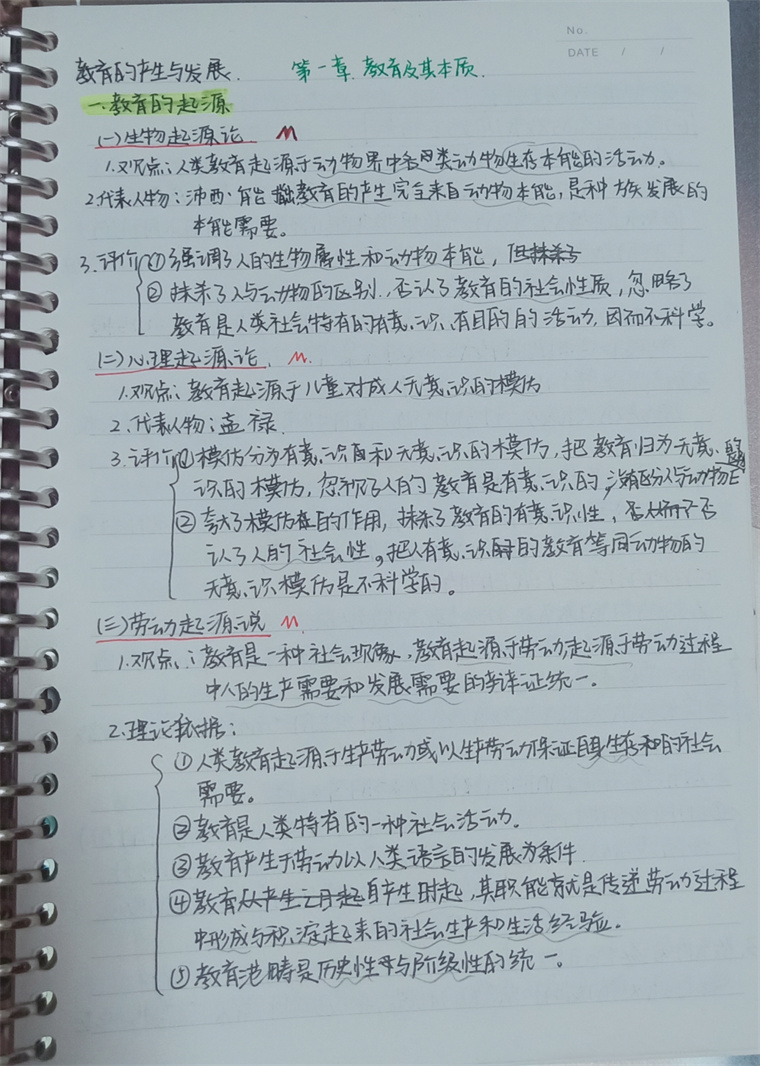 No.
DATE / /
教育的产生与发展. 第一章. 教育及其本质.
一.教育的起源
(一)生物起源论
1.观点:人类教育起源于动物界中各类动物生存本能的活动。
2.代表人物:沛西·能 教育的产生完全来自动物本能,是种族发展的
本能需要。
3.评价 ①强调了人的生物属性和动物本能,但抹杀了
②抹杀了人与动物的区别,否认了教育的社会性质,忽略了
教育是人类社会特有的有意识、有目的的活动,因而不科学。
(二)心理起源论.
1.观点:教育起源于儿童对成人无意识的模仿
2.代表人物:孟禄.
3.评价 ①模仿分为有意识和无意识的模仿,把教育归为无意
识的模仿,忽视了人的教育是有意识的,没有区分人与动物
②夸大了模仿的作用,抹杀了教育的有意识性,否
认了人的社会性。把人有意识的教育等同动物的
无意识模仿是不科学的。
(三)劳动起源说
1.观点:教育是一种社会现象,教育起源于劳动,起源于劳动过程
中人的生产需要和发展需要的辩证统一.
2.理论依据:
①人类教育起源于生产劳动或以生产劳动保证自身生存和的社会
需要。
②教育是人类特有的一种社会活动.
③教育产生于劳动以人类语言的发展为条件.
④教育从产生之日起自产生时起,其职能就是传递劳动过程
中形成与积淀起来的社会生产和生活经验。
⑤教育范畴是历史性与阶级性的统一.